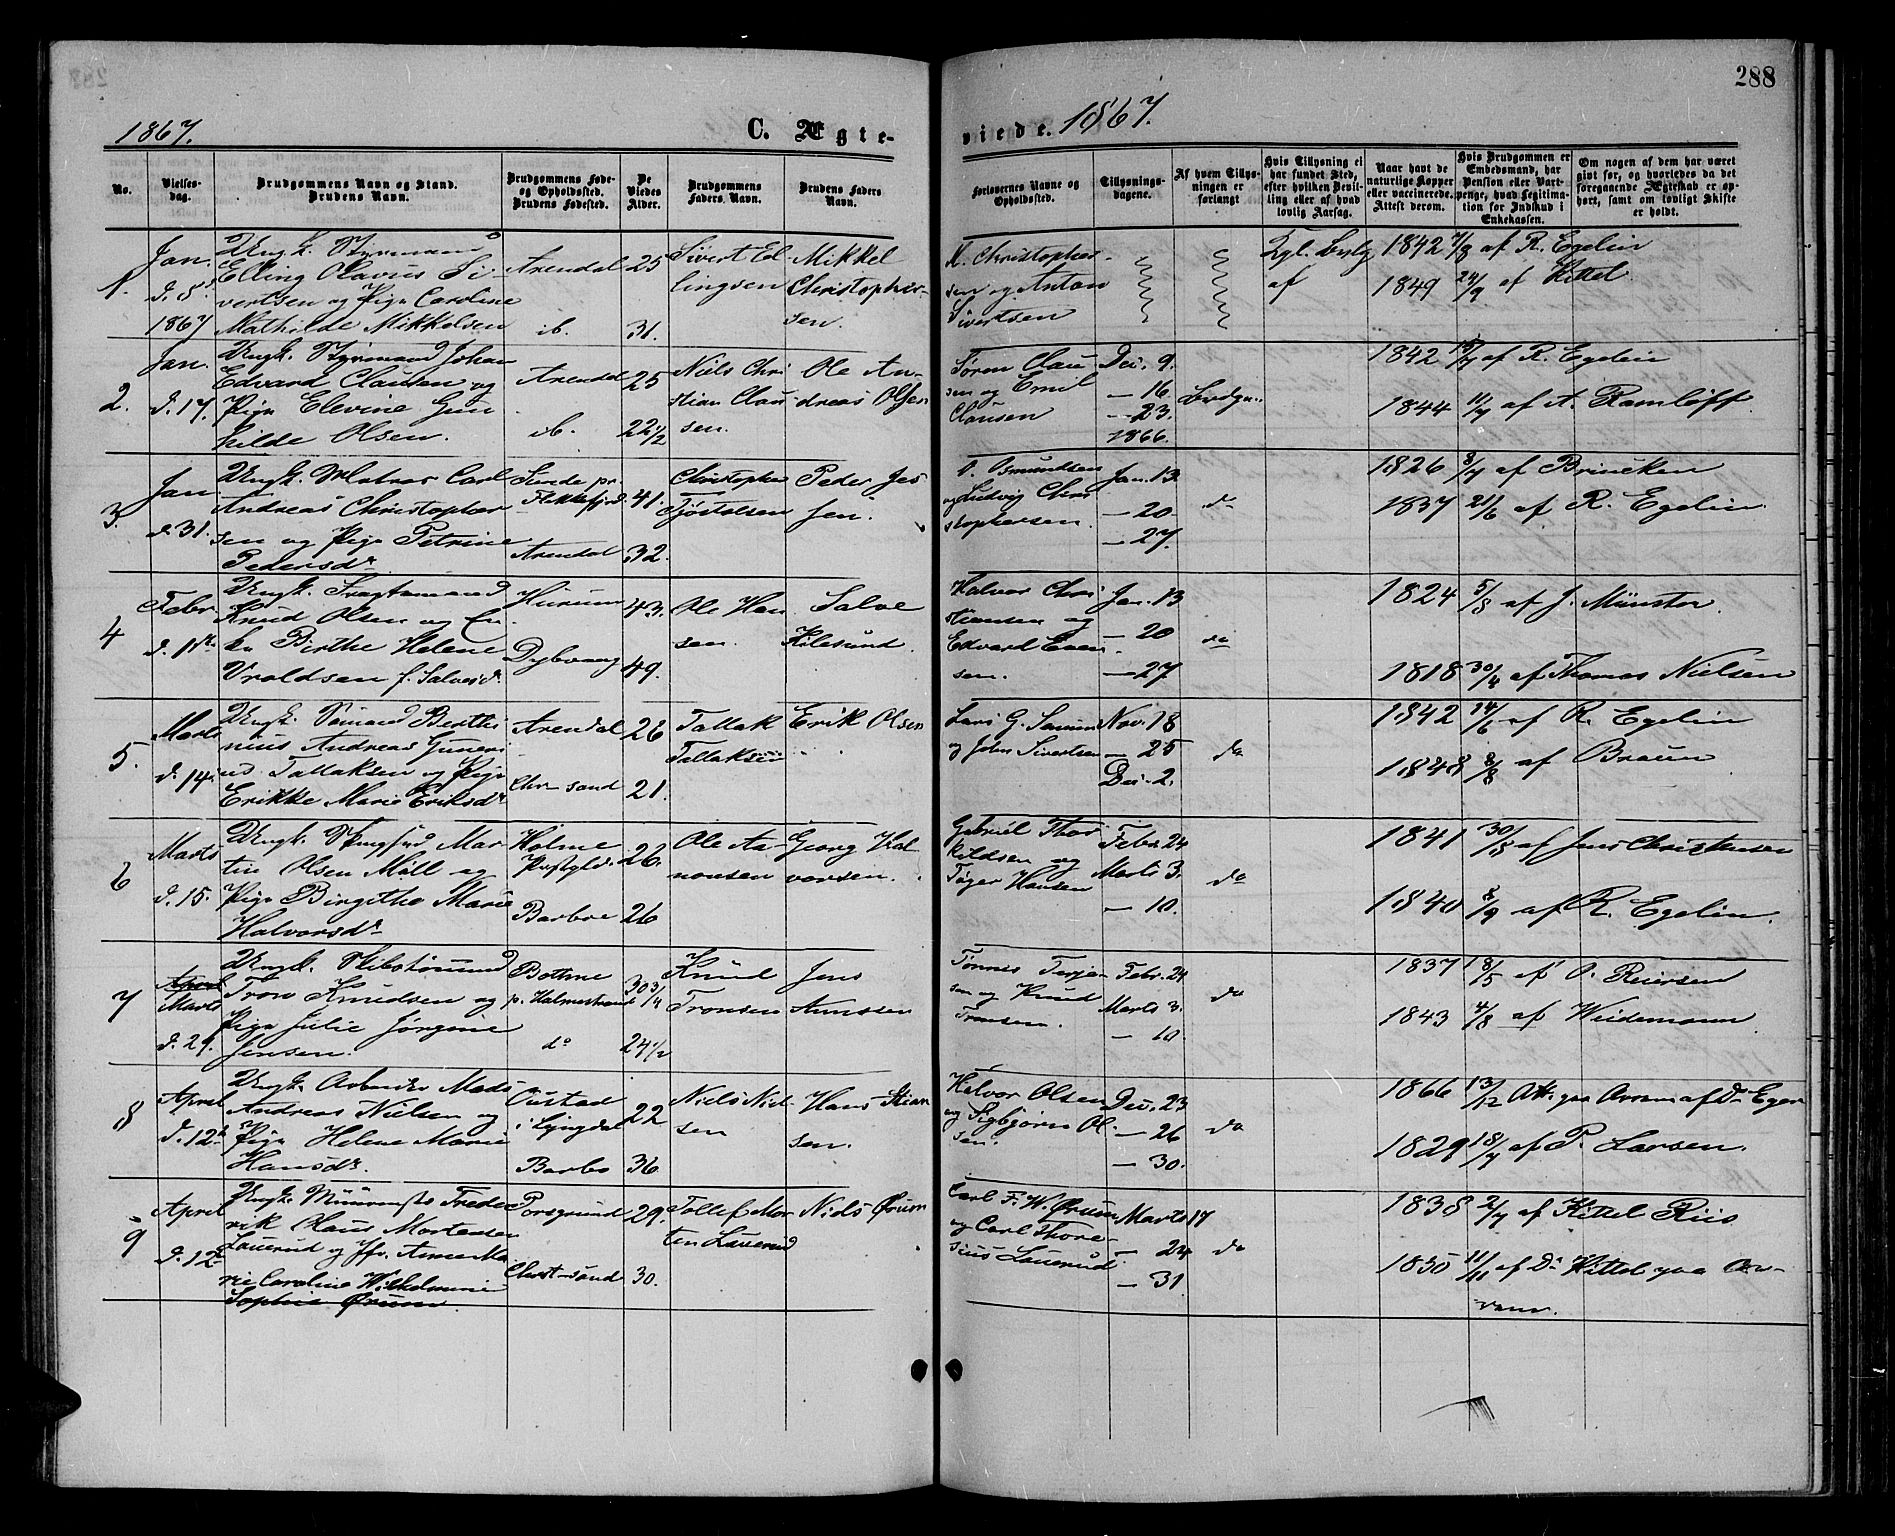 288
1867.
C. Ægte-
viede. 1867.
No.
Vielses-
dag.
Brudgommens Navn og Stand.
Brudens Navn.
Brudgommens Føde-
og Opholdssted.
Brudens Fødested.
De
Viedes
Alder.
Brudgommens
Faders Navn.
Brudens Faders
Navn.
Forlovernes Navne og
Opholdssted.
Tillysnings-
dagene.
Af hvem Tillys-
ningen er
forlangt
Hvis Tillysning ei
har fundet Sted,
efter hvilken Bevil-
ling eller af hvad
lovlig Aarsag.
Naar havt de
naturlige Kopper
eller vaccinerede.
Attest derom.
Hvis Brudgommen er
Embedsmand, har
Pension eller Vart-
penge, hvad Legitima-
tion for Indskud i
Enkekassen.
Om nogen af dem har været
gift før, og hvorledes da det
foregaaende Ægteskab er op-
hørt, samt om lovligt Skifte
er holdt.
1.
Jan.
d. 8.
1867
Ungk. Styrmand
Elling Olavus Si-
vertsen og Pige Caroline
Mathilde Mikkelsen
Arendal
ib.
25
31.
Sivert El-
lingsen
Mikkel
Christopher-
sen.
M. Christopher-
sen og Anton
Sivertsen
Kgl. Bevlg
af
1842 7/8 af R. Egelin
1849 24/9 af Kittel
2.
Jan.
d. 17.
Ungk. Styrmand Johan
Edvard Clausen og
Pige Elevine Gun
hilde Olsen.
Arendal
ib.
25
22 1/2
Niels Chri
stian Clau
sen.
Ole An-
dreas Olsen
Søren Clau
sen og Emil
Clausen
Dec. 9.
— 16
— 23.
1866.
Brdgm.
1842 15/7 af R. Egelin
1844 11/7 af A. Ramløff
3.
Jan
d. 31.
Ungk. Matros Carl
Andreas Christopher
sen og Pige Petrine
Pedersdr.
Sunde pr.
Flekkefjord
Arendal
41.
32.
Christopher
Tjøstolsen
Peder Jes
sen.
O. Osmundsen
og Ludvig Chri
stophersen.
Jan. 13
— 20
— 27.
do
1826 8/7 af Brincken
1837 21/6 af R. Egelin.
4
Febr
d. 1ste
Ungk. Fragtemand
Knud Olsen og En
ke Birthe Helene
Vroldsen f. Salvesdr.
Hurum
Dybvaag
43.
49.
Ole Han
sen.
Salve
Kilesund.
Halvor Chri
stiansen og
Edvard Even
sen.
Jan. 13
— 20
— 27
do
1824 5/8 af J. Münster.
1818 30/4 af Thomas Nielsen
5.
Marts
d. 14.
Ungk. Sømand Berthi
nius Andreas Guneri
us Tallaksen og Pige
Erikke Marie Eriksdr
Arendal
Chr-sand
26
21.
Tallak
Tallaksen
Erik Olsen
Lars G. Sørum
og John Sivertsen
Nov. 18
— 25
Dec. 2.
do
1842 14/6 af R. Egelin
1848 8/8 af Braun
6
Marts
d. 15.
Ungk. Mar
tin Olsen Möll og
Pige Birgithe Marie
Halvorsdr
Holme
Præstgld.
Barboe
26.
26
Ole Aa-
nonsen
Georg Hal
vorsen.
Gabriel Thor
kildsen og
Tøger Hansen
Febr. 24
Marts 3.
— 10.
do
1841 30/8 af Jens Christensen
1840 8/9 af R. Egelin.
7
April
Marts
d. 29.
Ungk. Skibstømmd
Tron Knudsen og
Pige Julie Jørgine
Jensen.
Botne
p. Holmestrand
do
30 3/4
24 1/2
Knud
Tronsen
Jens
Annssen
Tønnes Terje-
sen og Knud
Tronsen.
Febr. 24
Marts 3.
— 10.
do
1837 18/5 af O. Reiersen
1843 4/8 af Weidemann
8
April
d. 12te
Ungk. Arbeider Mads
Andreas Nielsen og
Pige Helene Marie
Hansdr.
Oustad
i Lyngdal
Barbo
22
36
Niels Niel-
sen
Hans Stian
sen.
Halvor Olsen
og Sigbjørn Ol
sen.
Dec. 23
— 26
— 30.
do
1866 13/12 Att. paa Arram af Dr Eger
1829 18/7 af P. Larsen.
9
April
d. 12te
Ungk. Muurmstr Frede
rik Claus Mortensen
Lauerud og Jfr. Anne Ma
rie Caroline Wilhelmine
Sophie Ørum
Porsgrund
Christ-sand
29.
30.
Tollef Mor
ten Lauerud
Niels Ørum
Carl F. W. Ørum
og Carl Thore
sius Lauerud.
Marts 17
— 24
— 31
do
1838 2/7 af Kittel Riis
1850 11/11 af Dr Kittel paa Ar-
ram.